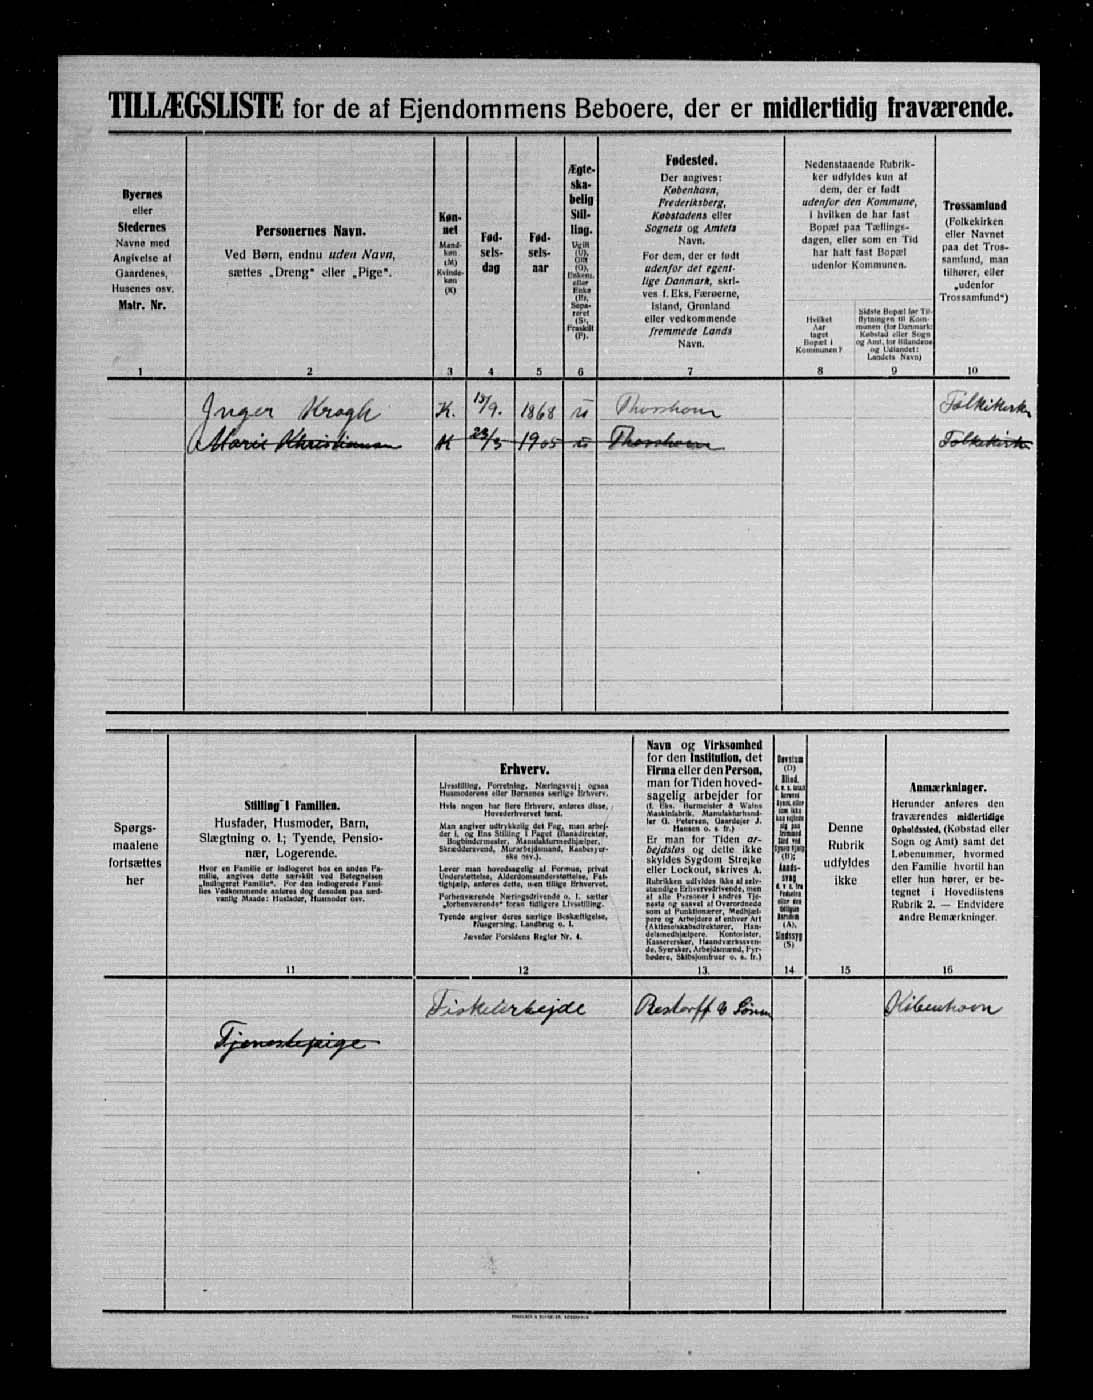 TILLÆGSLISTE for de af Ejendommens Beboere, der er midlertidig fraværende.
Byernes
eller
Stedernes
Navne med
Angivelse af
Gaardenes,
Husenes osv.
Matr. Nr.
Personernes Navn.
Ved Børn, endnu uden Navn,
sættes „Dreng“ eller „Pige“.
Køn-
net
Mand-
køn
(M)
Kvinde-
køn
(K)
Fød-
sels-
dag
Fød-
sels-
aar
Ægte-
ska-
belig
Stil-
ling.
Ugift
(U),
Gift
(G),
Enkem.
eller
Enke
(E),
Sepa-
reret
(S),
Fraskilt
(F).
Fødested.
Der angives:
København,
Frederiksberg,
Købstadens eller
Sognets og Amtets
Navn.
For dem, der er født
udenfor det egent-
lige Danmark, skri-
ves f. Eks. Færøerne,
Island, Grønland
eller vedkommende
fremmede Lands
Navn.
Nedenstaaende Rubrik-
ker udfyldes kun af
dem, der er født
udenfor den Kommune,
i hvilken de har fast
Bopæl paa Tællings-
dagen, eller som en Tid
har haft fast Bopæl
udenfor Kommunen.
Hvilket
Aar
taget
Bopæl i
Kommunen?
Sidste Bopæl før Til-
flytningen til Kom-
munen (for Danmark:
Købstad eller Sogn
og Amt, for Bilandene
og Udlandet:
Landets Navn)
Trossamfund
(Folkekirken
eller Navnet
paa det Tros-
samfund, man
tilhører, eller
„udenfor
Trossamfund“)
1 2 3 4 5 6 7 8 9 10
Inger Krogh K. 15/9. 1868 U Thorshavn Folkekirk
Marie Khristiansen K 23/3 1905 U Thorshavn Folkekirk
Spørgs-
maalene
fortsættes
her
Stilling i Familien.
Husfader, Husmoder, Barn,
Slægtning o. l.; Tyende, Pensio-
nær, Logerende.
Hvor en Familie er indlogeret hos en anden Fa-
milie, angives dette særskilt ved Betegnelsen
„Indlogeret Familie“. For den indlogerede Fami-
lies Vedkommende anføres dog desuden paa sæd-
vanlig Maade: Husfader, Husmoder osv.
Erhverv.
Livsstilling, Forretning, Næringsvej; ogsaa
Husmoderens eller Børnenes særlige Erhverv.
Hvis nogen har flere Erhverv, anføres disse,
Hovederhvervet først.
Man angiver udtrykkelig det Fag, man arbej-
der i, og Ens Stilling i Faget (Bankdirektør,
Bogbindermester, Manufakturmedhjælper,
Skræddersvend, Murarbejdsmand, Købesyer-
ske osv.).
Lever man hovedsagelig af Formue, privat
Understøttelse, Alderdomsunderstøttelse, Fat-
tighjælp, anføres dette, men tillige Erhvervet.
Forhenværende Næringsdrivende o. l. sætter
„forhenværende“ foran tidligere Livsstilling.
Tyende angiver deres særlige Beskæftigelse,
Husgerning, Landbrug o. l.
Jævnfør Forsidens Regler Nr. 4.
Navn og Virksomhed
for den Institution, det
Firma eller den Person,
man for Tiden hoved-
sagelig arbejder for
(f. Eks. Burmeister & Wains
Maskinfabrik, Manufakturhand-
ler G. Petersen, Gaardejer J.
Hansen o. s. fr.)
Er man for Tiden ar-
bejdsløs og dette ikke
skyldes Sygdom Strejke
eller Lockout, skrives A.
Rubrikken udfyldes ikke af selv-
stændige Erhvervsdrivende, men
af alle Personer i andres Tje-
neste og saavel af Overordnede
som af Funktionærer, Medhjæl-
pere og Arbejdere af enhver Art
(Aktieselskabsdirektører, Han-
delsmedhjælpere, Kontorister,
Kasserersker, Haandværkssven-
de, Syersker, Arbejdsmænd, Fyr-
bødere, Skibsjomfruer o. s. fr.)
Døvstum
(D)
Blind,
(B);
Aands-
svag
(A),
Sindssyg
(S)
Denne
Rubrik
udfyldes
ikke
Anmærkninger.
Herunder anføres den
fraværendes midlertidige
Opholdssted, (Købstad eller
Sogn og Amt) samt det
Løbenummer, hvormed
den Familie hvortil han
eller hun hører, er be-
tegnet i Hovedlistens
Rubrik 2. — Endvidere
andre Bemærkninger.
11 12 13. 14 15 16
Fiskeierhejde Restorff & Sønn København
Tjenestepige